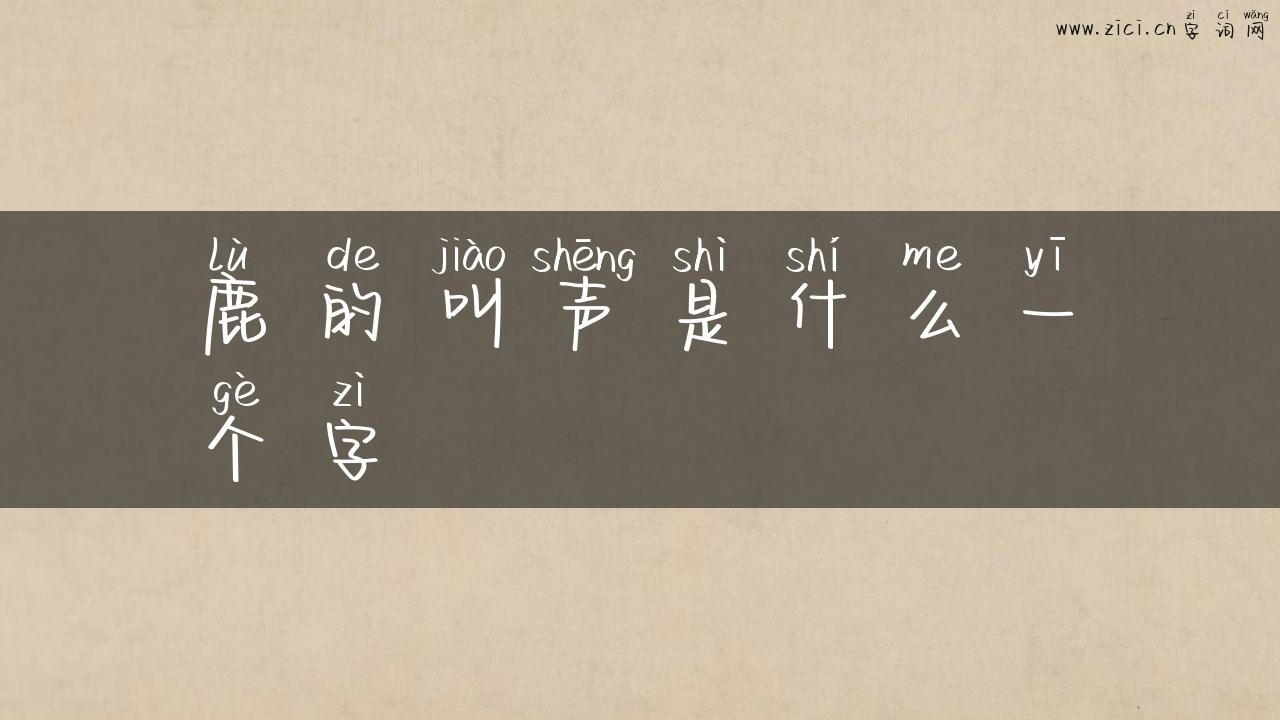 zì cí wǎng
www.zici.cn 字词网
lù de jiào shēng shì shí me yī
鹿的叫声是什么一
gè zì
个字